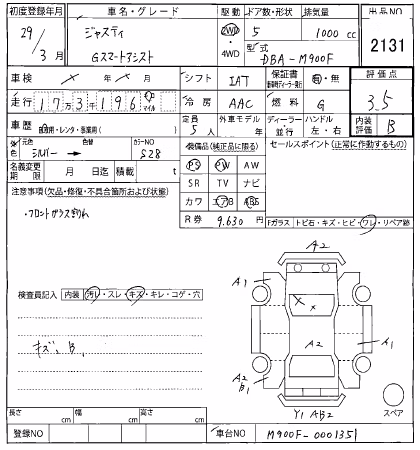 初度登録年月 車名・グレード 駆動 ドア数・形状 排気量 出品NO
29 3月 ジャスティ Gスマートアシスト 2WD・4WD 5 1000 cc 2131
型式 DBA-M900F
車検 × 年 × 月 シフト IAT 保証書 有・無 評価点
走行 17万3千196 km マイル 冷房 AAC 燃料 G 3.5
車歴 自家用・レンタ・事業用( ) 定員 5人 外車モデル 年 ディーラー 並行 ハンドル 左・右 内装評価 B
色 元色 シルバー → 色替 カラーNO S28 装備品(純正品に限る) セールスポイント(正常に作動するもの)
名義変更期限 月 日迄 積載 t PS PW AW
注意事項(欠品・修復・不具合箇所および状態) SR TV ナビ
・フロントガラスキリん カワ エアB ABS
R券 9,630 円 Fガラス トビ石・キズ・ヒビ・ワレ・リペア跡
A2
A1
検査員記入 内装 汚レ・スレ・キズ・キレ・コゲ・穴 X X
キズ、B、 A2 A1
A2
B1
Y1 AB2 スペア
長さ cm 幅 cm 高さ cm
登録NO 車台NO M900F-0001351